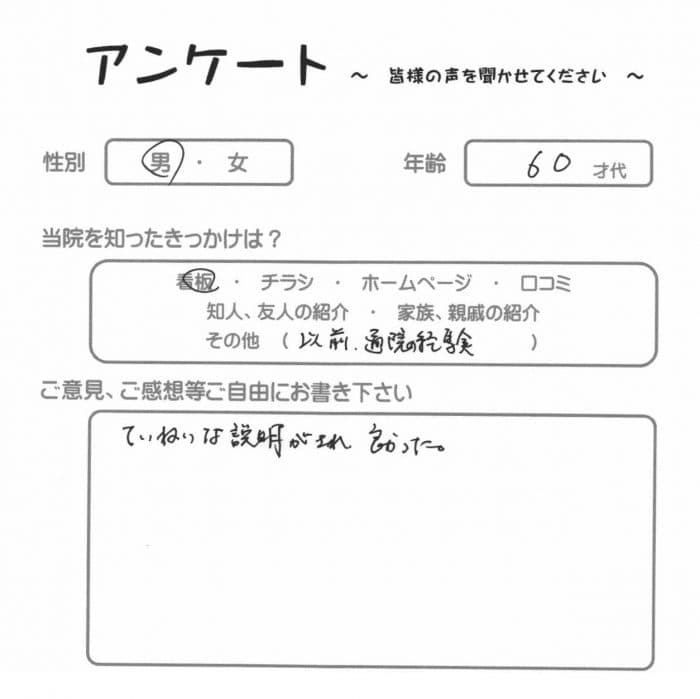 アンケート ～ 皆様の声を聞かせてください ～
性別 男 ・ 女 年齢 60 才代
当院を知ったきっかけは？
看板 ・ チラシ ・ ホームページ ・ 口コミ
知人、友人の紹介 ・ 家族、親戚の紹介
その他 （ 以前、通院の経験 ）
ご意見、ご感想等ご自由にお書き下さい
ていねいな説明がされ 良かった。